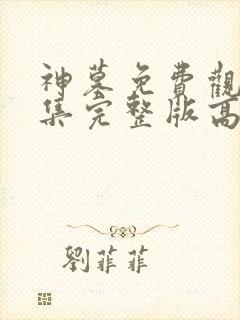 神墓免費觀
集完整版高
劉菲菲